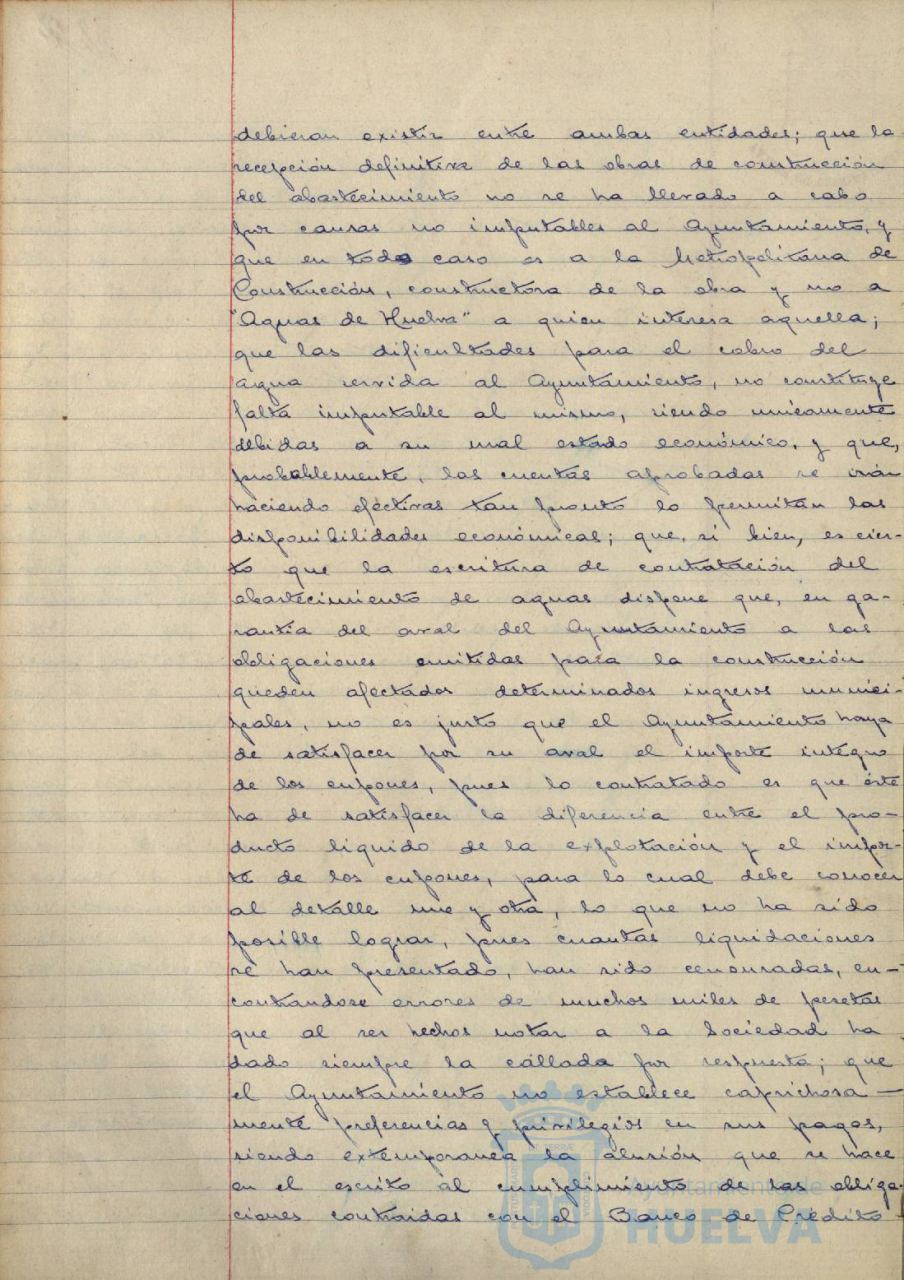 debieran existir entre ambas entidades; que la
recepción definitiva de las obras de construcción
del abastecimiento no se ha llevado a cabo
por causas no imputables al Ayuntamiento, y
que en todo caso es a la Metropolitana de
Construcción, constructora de la obra y no a
"Aguas de Huelva" a quien interesa aquella;
que las dificultades para el cobro del
agua servida al Ayuntamiento, no constituye
falta imputable al mismo, siendo unicamente
debidas a su mal estado económico, y que,
probablemente, las cuentas aprobadas se irán
haciendo efectivas tan pronto lo permitan las
disponibilidades económicas; que, si bien, es cier-
to que la escritura de contratación del
abastecimiento de aguas dispone que, en ga-
rantía del aval del Ayuntamiento a las
obligaciones emitidas para la construcción
queden afectados determinados ingresos munici-
pales, no es justo que el Ayuntamiento haya
de satisfacer por su aval el importe integro
de los cupones, pues lo contratado es que éste
ha de satisfacer la diferencia entre el pro-
ducto liquido de la explotación y el impor-
te de los cupones, para lo cual debe conocer
al detalle uno y otra, lo que no ha sido
posible lograr, pues cuantas liquidaciones
se han presentado, han sido censuradas, en-
contrandose errores de muchos miles de pesetas
que al ser hechos notar a la Sociedad ha
dado siempre la callada por respuesta; que
el Ayuntamiento no establece caprichosa-
mente preferencias y privilegios en sus pagos,
siendo extemporanea la alusión que se hace
en el escrito al cumplimiento de las obliga-
ciones contraidas con el Banco de Crédito
Ayuntamiento de
HUELVA